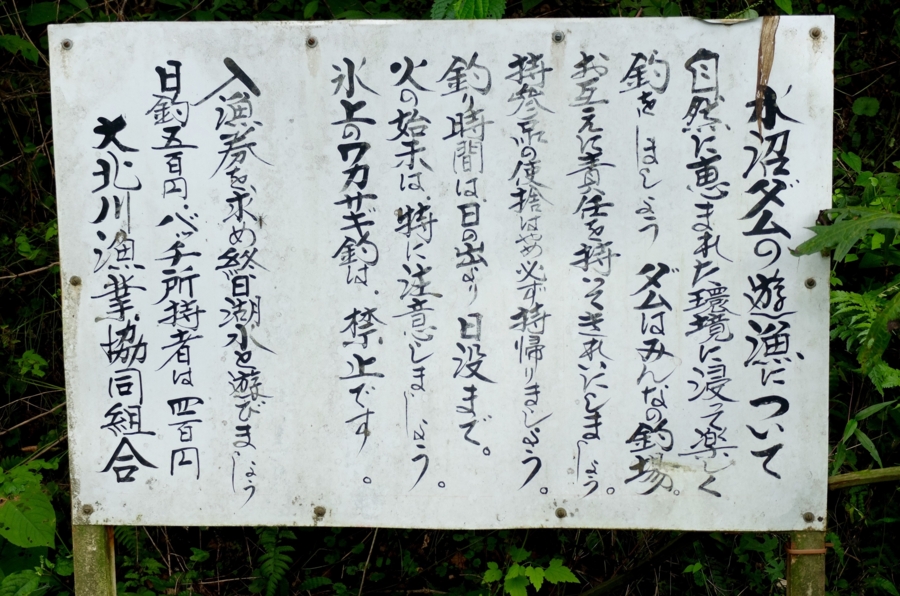 水沼ダムの遊漁について
自然に恵まれた環境に浸って楽しく
釣をしましょう ダムはみんなの釣場。
お互えに責任を持ってきれいにしましょう。
持参品の使捨はやめ必ず持帰りましょう。
釣り時間は日の出より日没まで。
火の始末は特に注意しましょう。
氷上のワカサギ釣は、禁止です。
入漁券を求め終日湖水と遊びましょう
日釣五百円・バッチ所持者は四百円
大北川漁業協同組合